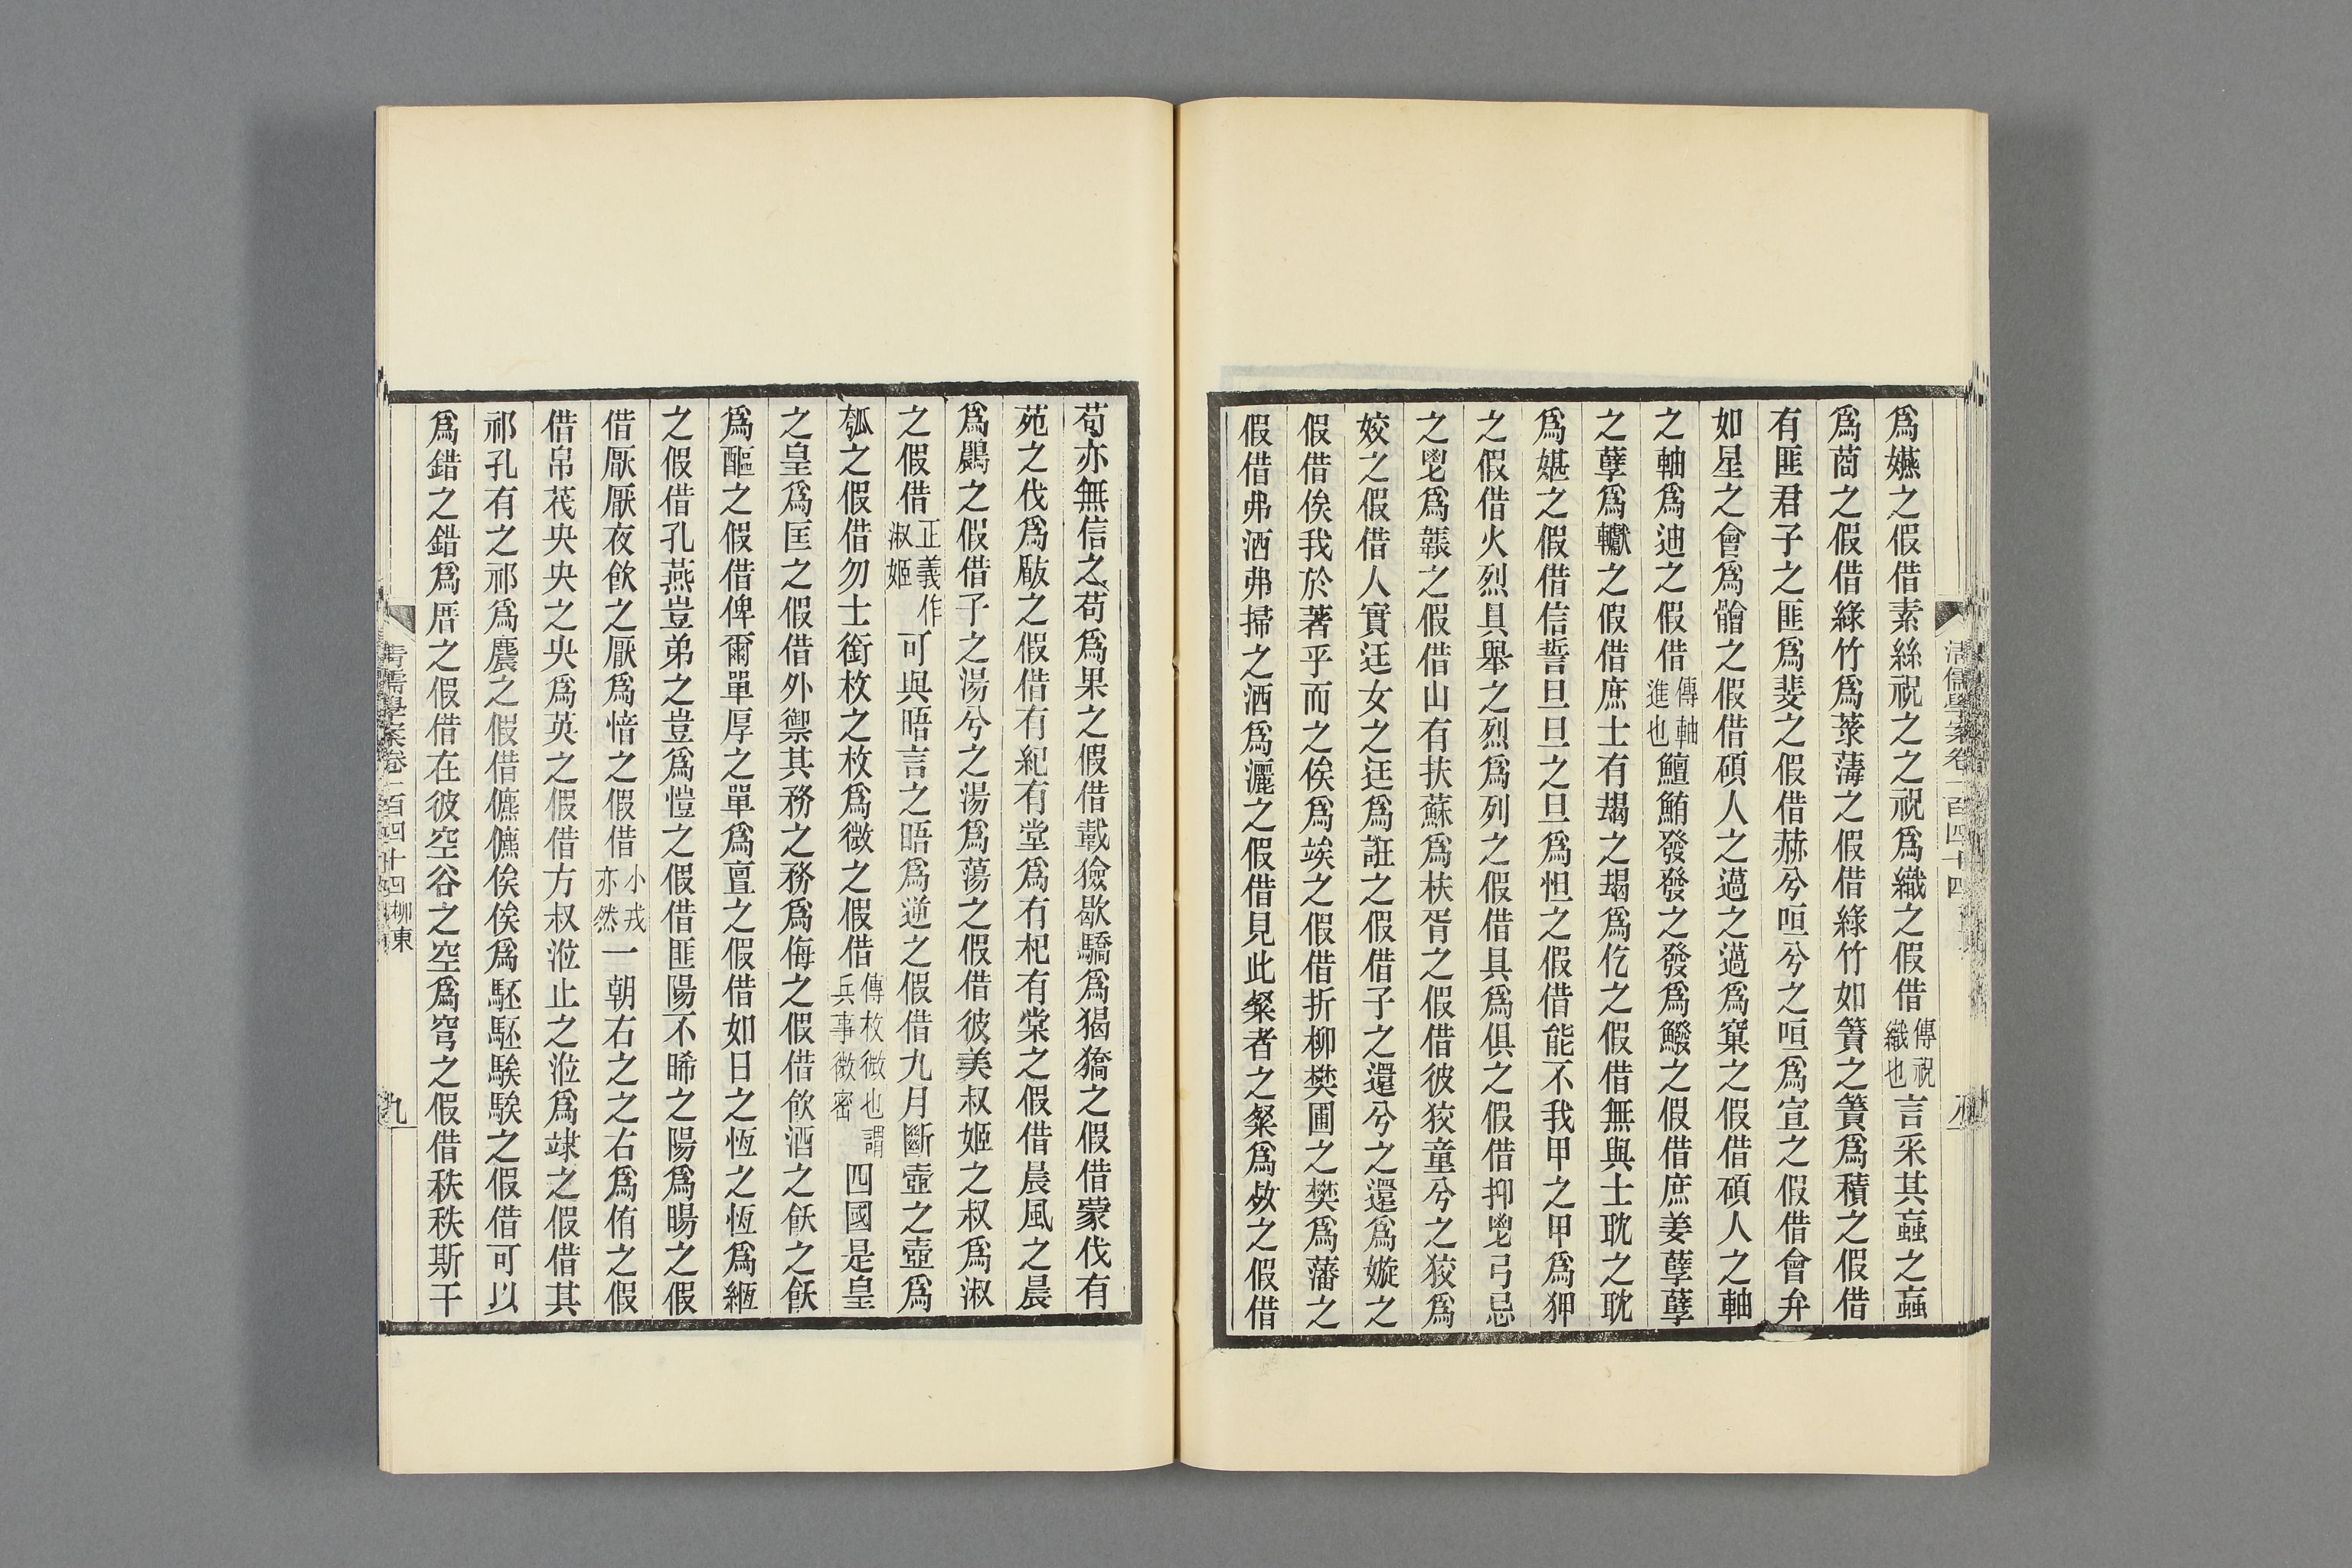 爲嬿之假借素絲祝之之祝爲織之假借傳祝織也言采其蝱之蝱
爲莔之假借綠竹爲菉薄之假借綠竹如簀之簀爲積之假借
有匪君子之匪爲斐之假借赫兮咺兮之咺爲宣之假借會弁
如星之會爲䯤之假借碩人之薖之薖爲窠之假借碩人之軸
之軸爲迪之假借傳軸進也鱣鮪發發之發爲鱍之假借庶姜孽孽
之孽爲钀之假借庶士有朅之朅爲仡之假借無與士耽之耽
爲媅之假借信誓旦旦之旦爲怛之假借能不我甲之甲爲狎
之假借火烈具舉之烈爲列之假借具爲俱之假借抑鬯弓忌
之鬯爲韔之假借山有扶蘇爲枎胥之假借彼狡童兮之狡爲
姣之假借人實迋女之迋爲誑之假借子之還兮之還爲嫙之
假借俟我於著乎而之俟爲竢之假借折柳樊圃之樊爲藩之
假借弗洒弗掃之洒爲灑之假借見此粲者之粲爲㛑之假借
苟亦無信之苟爲果之假借載獫歇驕爲猲獢之假借蒙伐有
苑之伐爲瞂之假借有紀有堂爲有杞有棠之假借晨風之晨
爲鷐之假借子之湯兮之湯爲蕩之假借彼美叔姬之叔爲淑
之假借正義作淑姬可與晤言之晤爲逆之假借九月斷壺之壺爲
瓠之假借勿士銜枚之枚爲微之假借傳枚微也謂兵事微密四國是皇
之皇爲匡之假借外禦其務之務爲侮之假借飲酒之飫之飫
爲醧之假借俾爾單厚之單爲亶之假借如日之恆之恆爲縆
之假借孔燕豈弟之豈爲愷之假借匪陽不晞之陽爲暘之假
借厭厭夜飲之厭爲愔之假借小戎亦然一朝右之之右爲侑之假
借帛茷央央之央爲英之假借方叔涖止之涖爲竦之假借其
祁孔有之祁爲麎之假借儦儦俟俟爲駓駓騃騃之假借可以
爲錯之錯爲厝之假借在彼空谷之空爲穹之假借秩秩斯干
清儒學案卷一百四十四 柳東
九